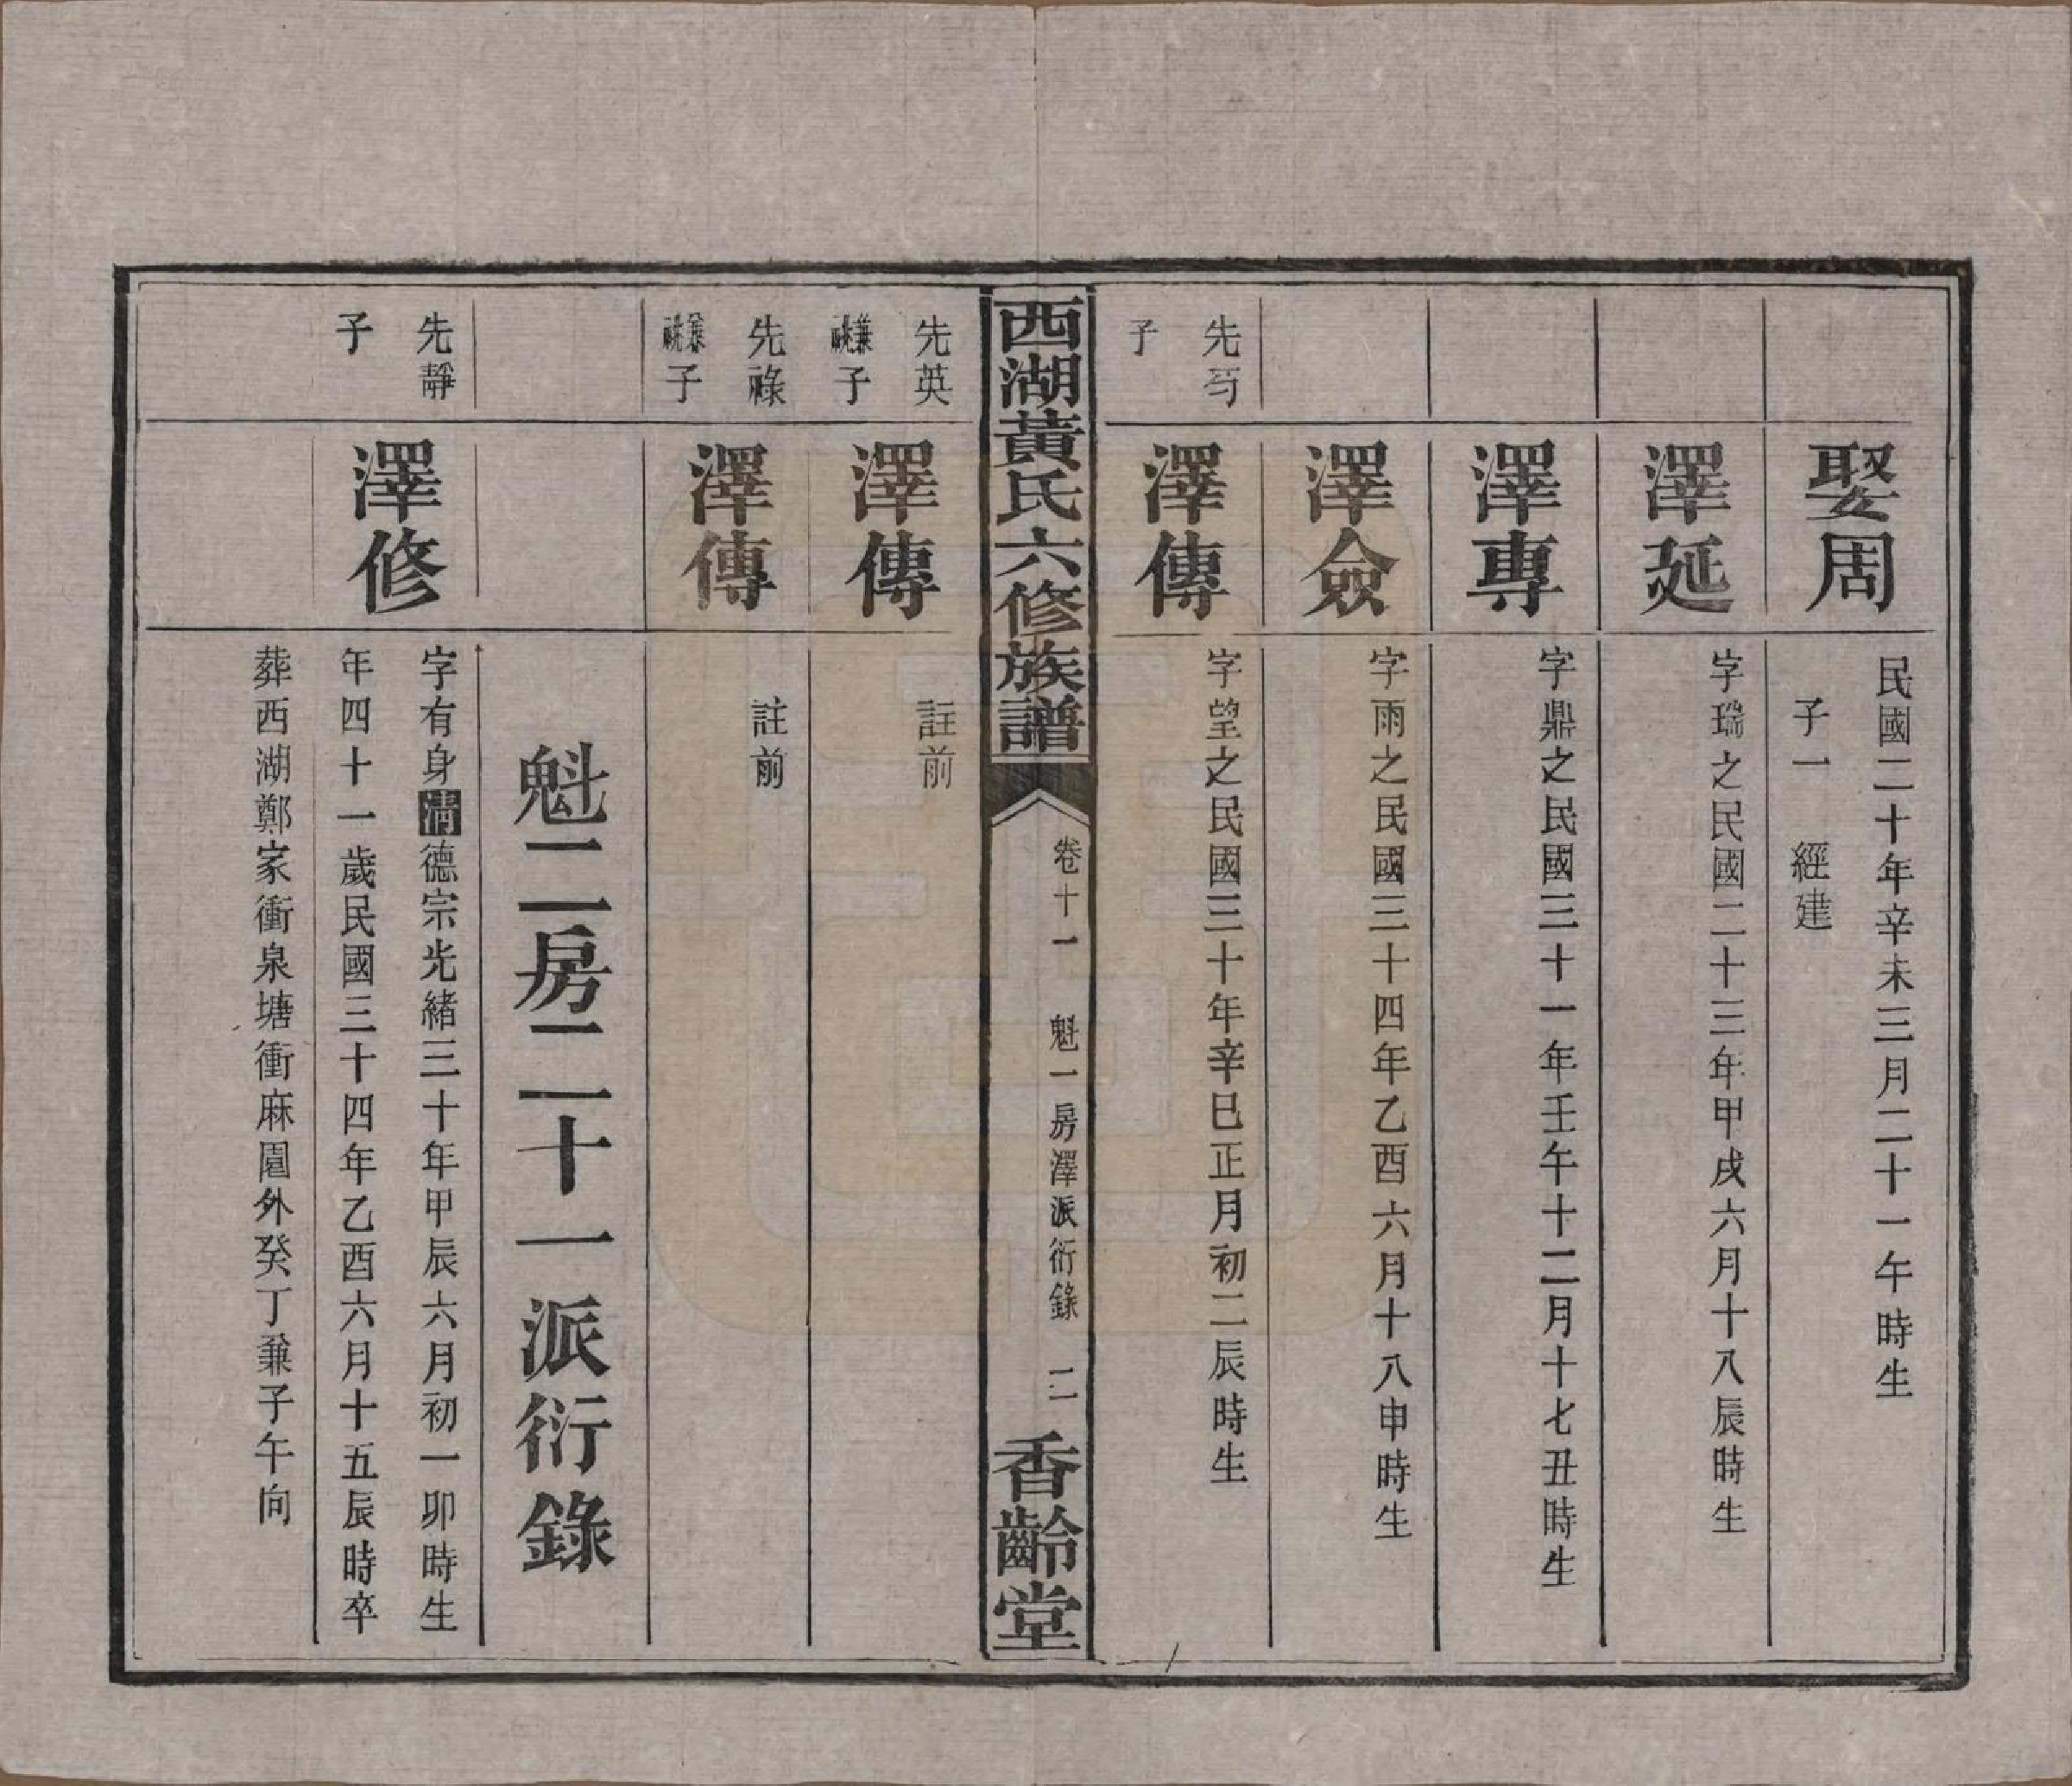 娶周
民國二十年辛未三月二十一午時生
子一 經建
澤延
字瑞之民國二十三年甲戌六月十八辰時生
澤專
字鼎之民國三十一年壬午十二月十七丑時生
澤僉
字雨之民國三十四年乙酉六月十八申時生
先芍
子
澤傳
字望之民國三十年辛巳正月初二辰時生
西湖黃氏六修族譜
卷十一 魁一房澤派衍錄 二
香齡堂
先英
兼祧子
澤傳
註前
先祿
兼祧子
澤傳
註前
魁二房二十一派衍錄
先靜
子
澤修
字有身清德宗光緒三十年甲辰六月初一卯時生
年四十一歲民國三十四年乙酉六月十五辰時卒
葬西湖鄭家衝泉塘衝麻園外癸丁兼子午向